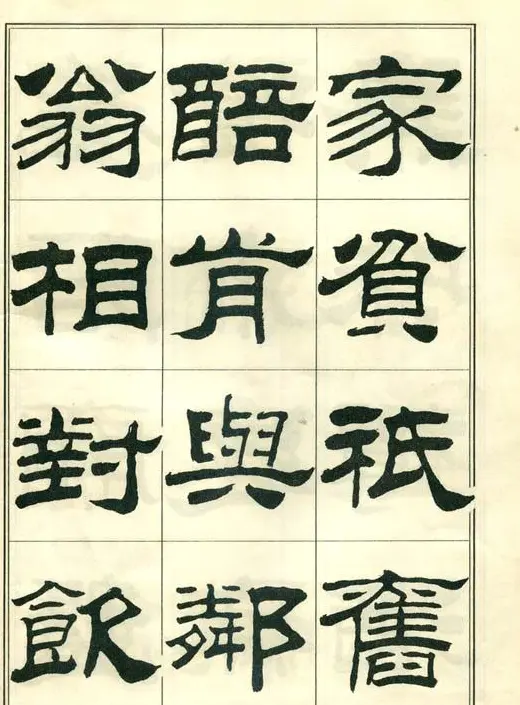 家貧祇舊
醅肯與鄰
翁相對飲